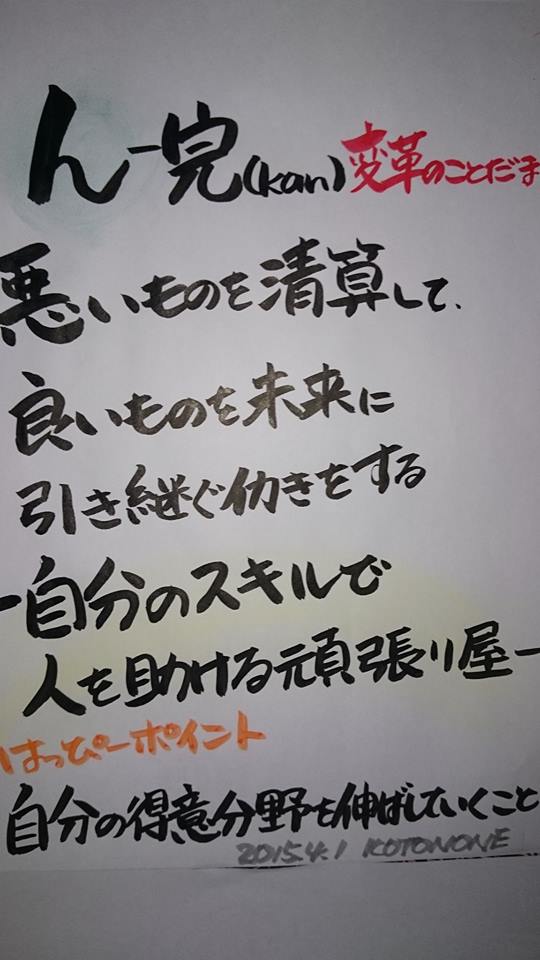 ん-完(kan)変革のことだま
悪いものを清算して、
良いものを未来に
引き継ぐ仂きをする
-自分のスキルで
人を助ける頑張り屋-
はっぴーポイント
自分の得意分野を伸ばしていくこと
2015.4.1 KOTONONE